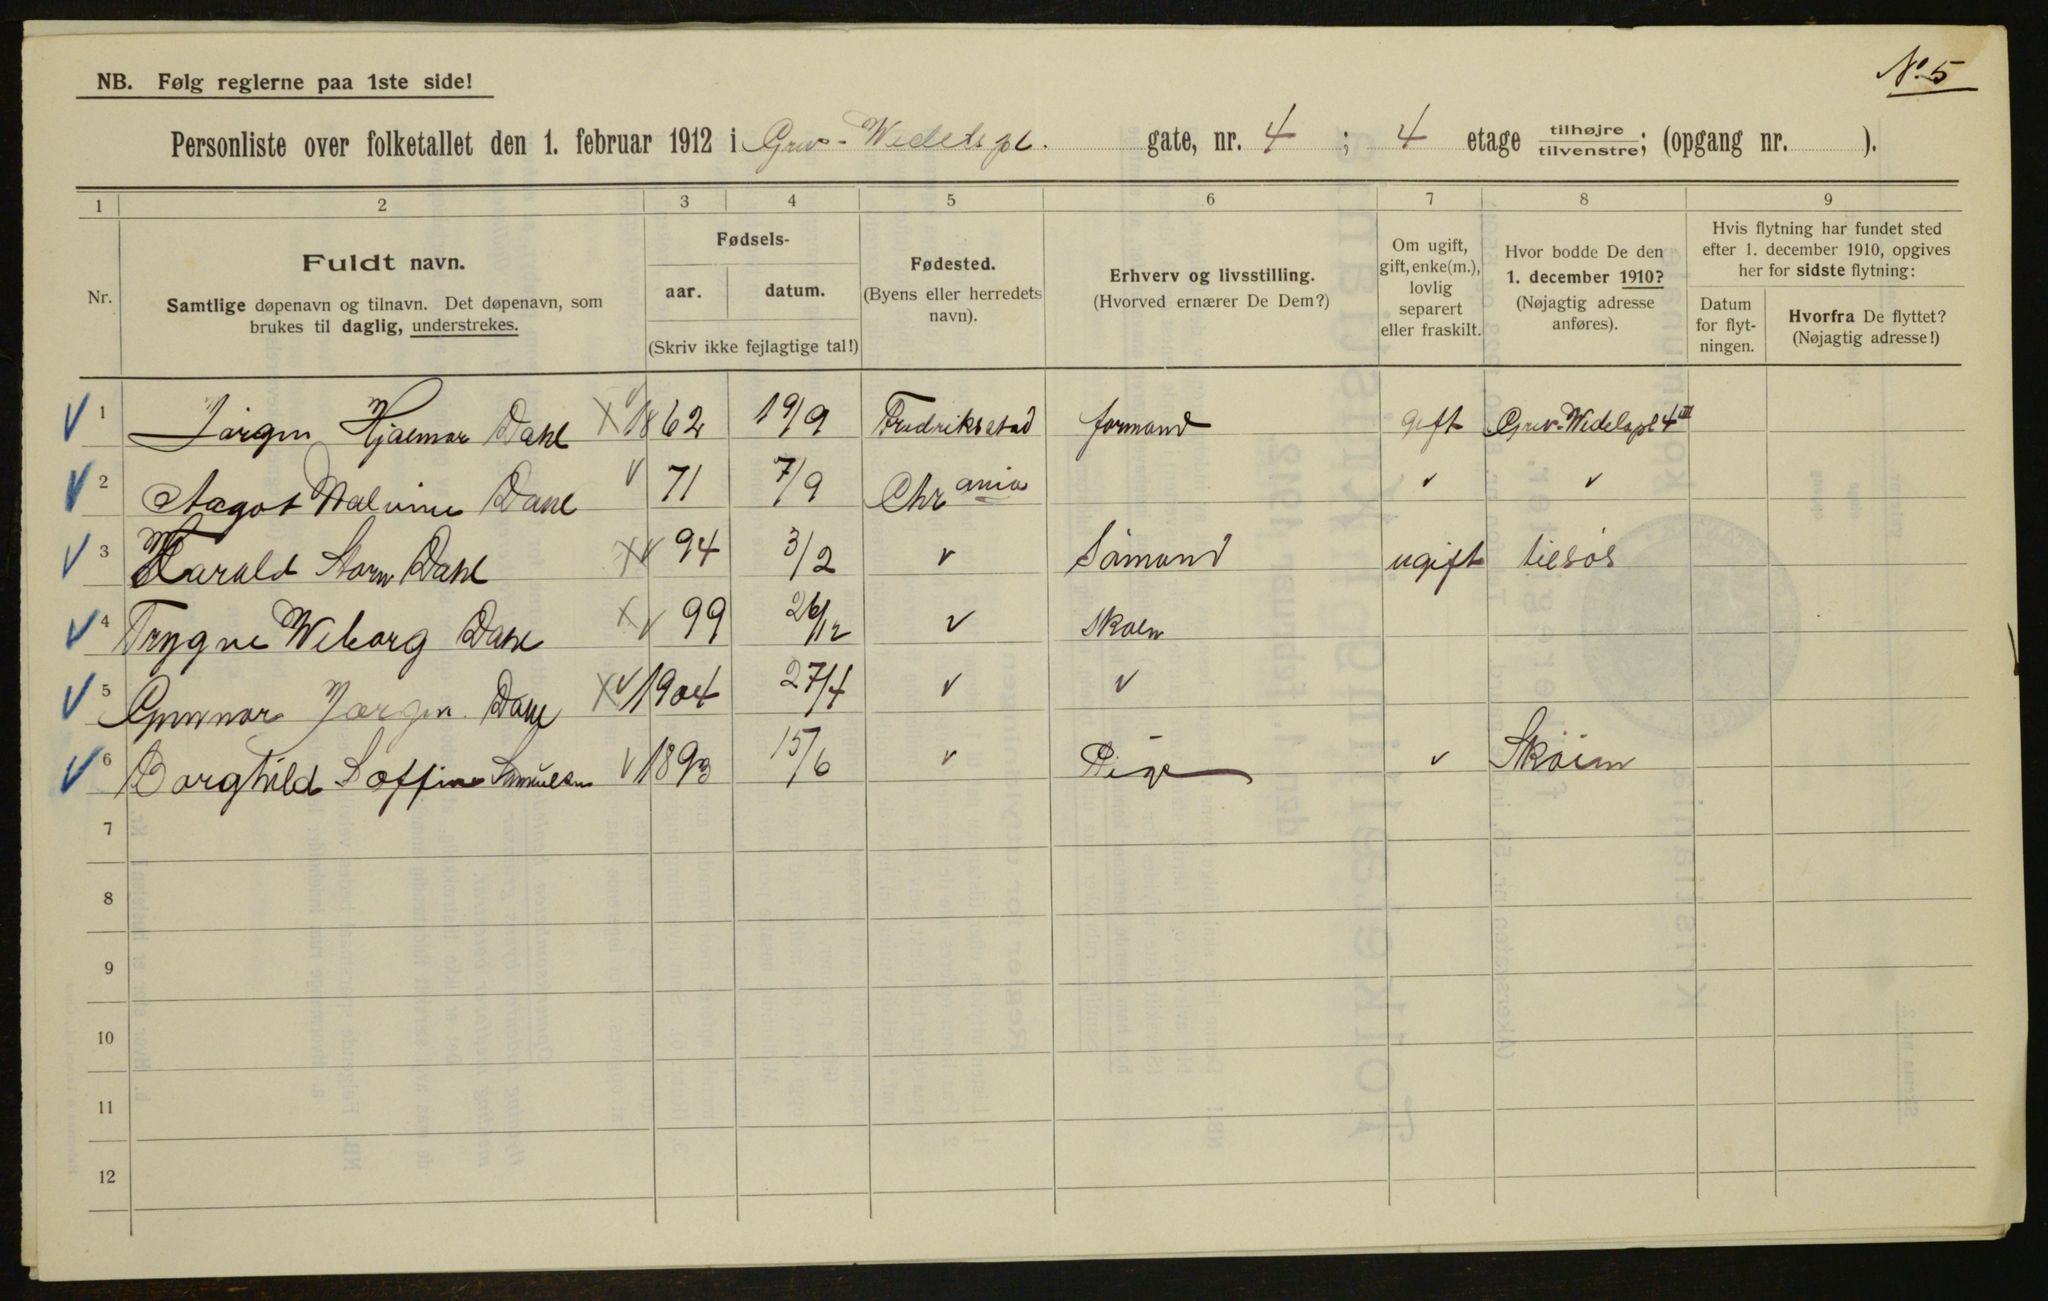 NB. Følg reglerne paa 1ste side!
No. 5
Personliste over folketallet den 1. februar 1912 i Grev-Wedels pl. gate, nr. 4 ; 4 etage tilhøjre tilvenstre; (opgang nr. ).
1 2 3 4 5 6 7 8 9
Nr.
Fuldt navn.
Samtlige døpenavn og tilnavn. Det døpenavn, som
brukes til daglig, understrekes.
Fødsels-
aar. datum.
(Skriv ikke fejlagtige tal!)
Fødested.
(Byens eller herredets
navn).
Erhverv og livsstilling.
(Hvorved ernærer De Dem?)
Om ugift,
gift, enke(m.),
lovlig
separert
eller fraskilt.
Hvor bodde De den
1. december 1910?
(Nøjagtig adresse
anføres).
Hvis flytning har fundet sted
efter 1. december 1910, opgives
her for sidste flytning:
Datum
for flyt-
ningen.
Hvorfra De flyttet?
(Nøjagtig adresse!)
1 Jørgen Hjalmar Dahl 1862 19/9 Fredriksstad formand gift Grev-Wedelspl 4 III
2 Aagot Malvine Dahl 71 7/9 Chrania " "
3 Harald Storm Dahl 94 3/2 " Sømand ugift tilsøs
4 Trygve Wiborg Dahl 99 26/12 " Skolen
5 Gunnar Jørgen Dahl 1904 27/4 " "
6 Borghild Soffine Samuelsen 1893 15/6 " Pige " Skøien
7
8
9
10
11
12